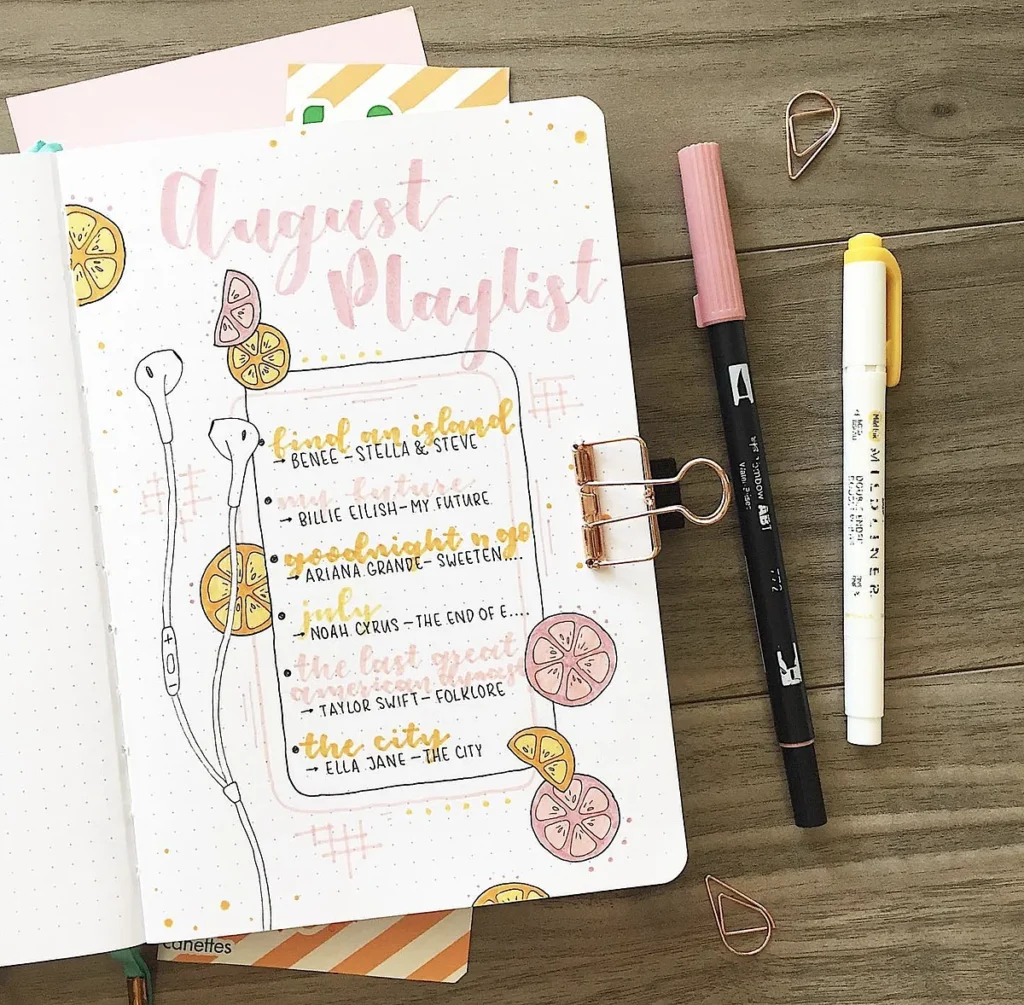 August
Playlist
find an island
→ BENEE – STELLA & STEVE
my future
→ BILLIE EILISH – MY FUTURE
goodnight n go
→ ARIANA GRANDE – SWEETEN....
july
→ NOAH CYRUS – THE END OF E....
the last great
american dynasty
→ TAYLOR SWIFT – FOLKLORE
the city
→ ELLA JANE – THE CITY
canettes
ABT
772
MILDLINER